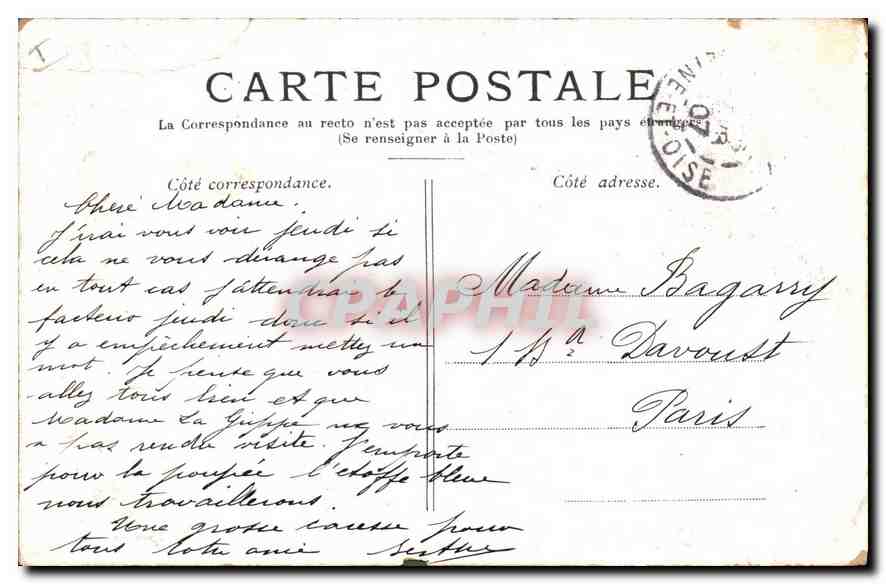 T
CARTE POSTALE
La Correspondance au recto n'est pas acceptée par tous les pays étrangers
(Se renseigner à la Poste)
Côté correspondance.
Côté adresse.
Chère Madame.
J'irai vous voir jeudi si
cela ne vous dérange pas
en tout cas j'attendrai le
facteur jeudi donc si il
y a empêchement mettez un
mot. Je pense que vous
allez tous bien et que
Madame La Grippe ne vous
a pas rendu visite. J'emporte
pour la poupée l'étoffe bleue
nous travaillerons.
Une grosse caresse pour
tous votre amie Berthe
Madame Bagarry
1 Bd Davoust
Paris
SEINE-E-OISE
07
CPAPHIL